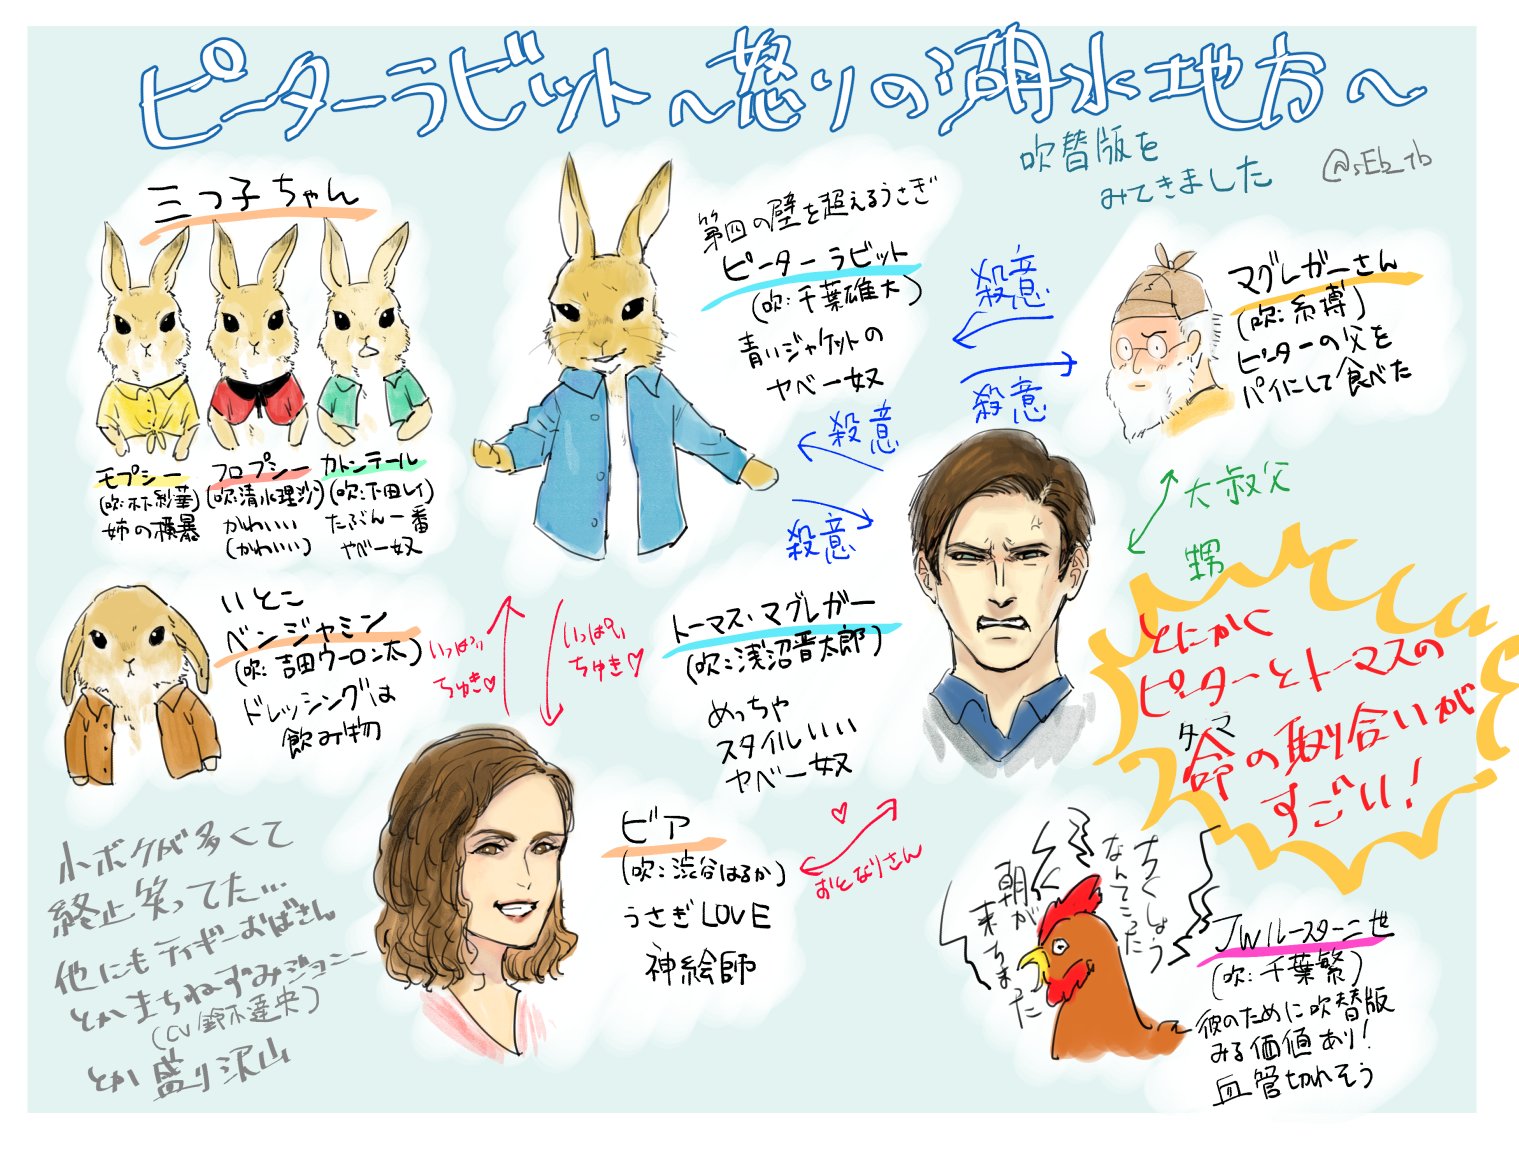 ピーターラビット～怒りの湖水地方～
吹替版を
みてきました
@sEb_tb
三つ子ちゃん
モプシー
(吹:木下紗華)
姉の横暴
フロプシー
(吹:清水理沙)
かわいい
(かわいい)
カトンテール
(吹:下田レイ)
たぶん一番
ヤベー奴
第四の壁を超えるうさぎ
ピーターラビット
(吹:千葉雄大)
青いジャケットの
ヤベー奴
殺意
殺意
マグレガーさん
(吹:糸博)
ピーターの父を
パイにして食べた
殺意
殺意
大叔父
甥
いとこ
ベンジャミン
(吹:吉田ウーロン太)
ドレッシングは
飲み物
いっぱい
ちゅき♡
いっぱい
ちゅき♡
トーマス・マグレガー
(吹:浅沼晋太郎)
めっちゃ
スタイルいい
ヤベー奴
とにかく
ピーターとトーマスの
タマ
命の取り合いが
すごい!
ビア
(吹:渋谷はるか)
うさぎLOVE
神絵師
♡
おとなりさん
小ボケが多くて
終止笑ってた…
他にもティギーおばさん
とかまちねずみジョニー
(CV鈴木達央)
とか盛り沢山
ちくしょう
なんてこった
朝が
来ちまった
JWルースター二世
(吹:千葉繁)
彼のために吹替版
みる価値あり!
血管切れそう